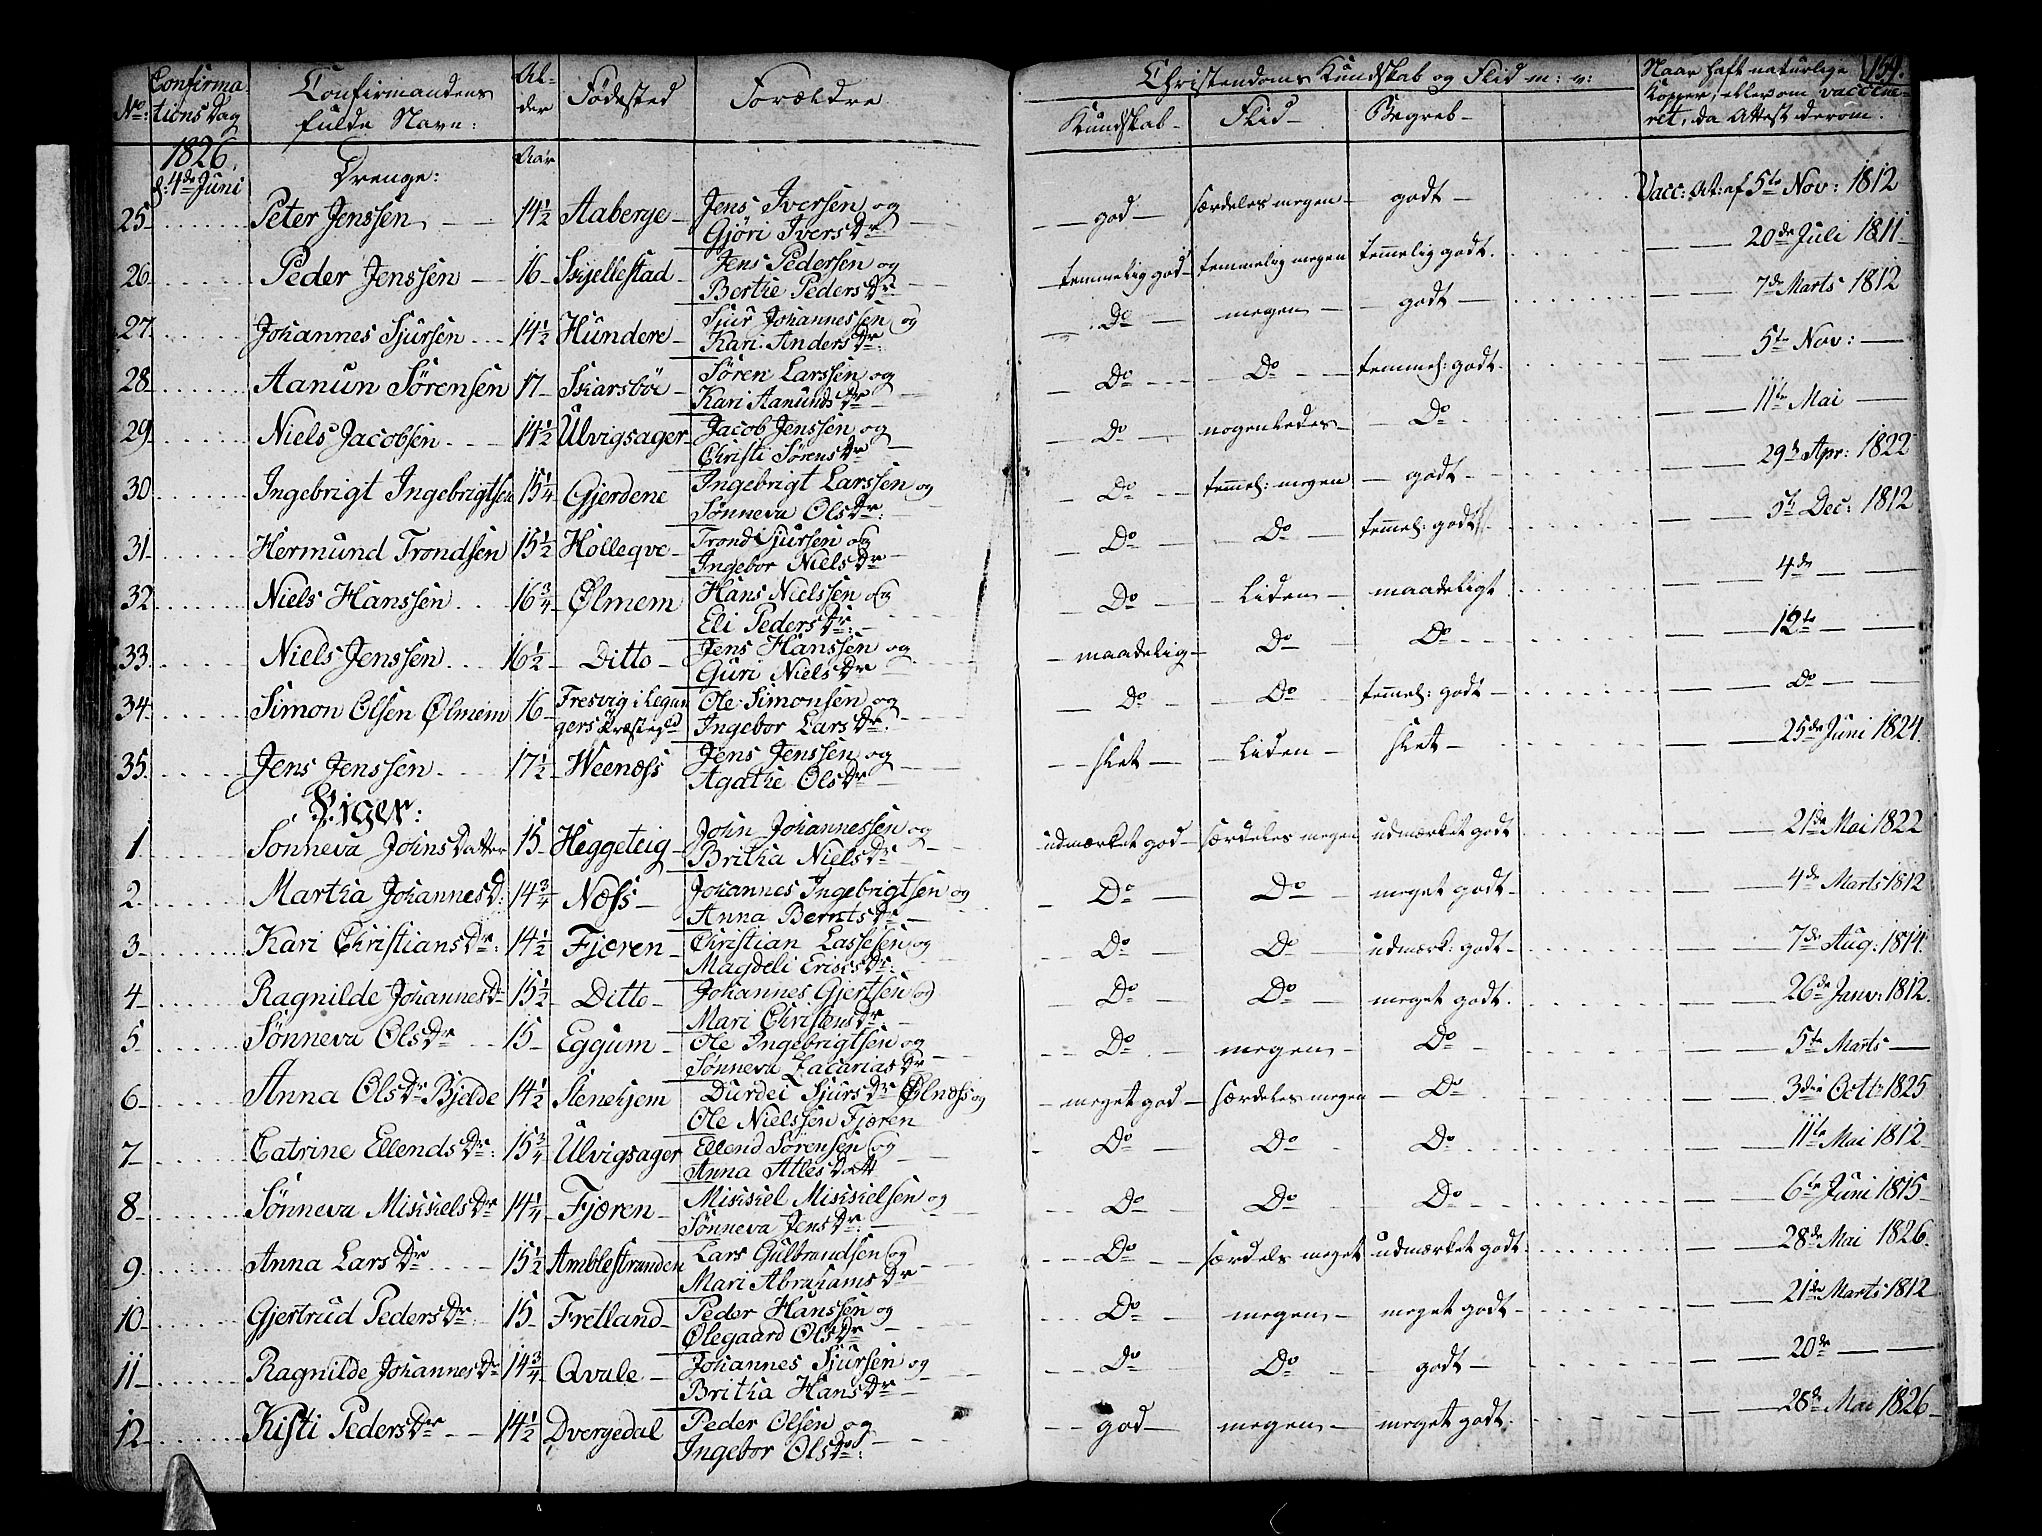 159.
No: Confirma tions Dag Confirmandens fulde Navn: Al- der Fødested Forældre Christendoms Kundskab og Flid m: v: Naar haft naturlige Kopper, eller om vaccine- ret, da Attest derom.
Kundskab - Flid - Begreb -
1826. Aar
d: 4de Juni Drenge:
25 Peter Jenssen 14½ Aaberge Jens Iversen og Gjøri Ivers Dr god særdeles megen godt Vacc: At: af 5te Nov: 1812
26 Peder Jenssen 16 Skjellestad Jens Pedersen og Berthe Peders Dr temmelig god temmelig megen temelig godt. 20de Juli 1811
27 Johannes Sjursen 14½ Hundere Sjur Johannessen og Kari Anders Dr: Do megen godt 7de Marts 1812
28 Aanun Sørensen 17 Skarsbøe Søren Larssen og Kari Aanunds Dr Do Do temmel: godt. 5te Nov:
29 Niels Jacobsen 14½ Ulvigsager Jacob Jenssen og Christi Sørens Dr Do nogenledes Do 11te Mai
30 Ingebrigt Ingebrigtsen 15¼ Gjerdene Ingebrigt Larssen og Sønneva Ols Dr: Do temel: megen godt 29de Apr: 1822
31 Hermund Trondsen 15½ Holleqve Trond Sjursen og Ingebor Niels Dr Do Do temel: godt 5te Dec: 1812
32 Niels Hanssen 16¾ Ølmem Hans Nielssen og Eli Peders Dr: Do Liden maadeligt 4de
33 Niels Jenssen 16½ Ditto Jens Hanssen og Guri Niels Dr maadelig Do Do 12te
34 Simon Olsen Ølmem 16 Fresvig i Legan gers Præstegd Ole Simonsen og Ingebor Lars Dr. Do Do temel: godt Do
35 Jens Jenssen 17½ Weenæss Jens Jenssen og Agathe Ols Dr slet Liden slet 25de Juni 1824.
Piger:
1 Sønneva Johns Datter 15 Heggeteig John Johannessen og Britha Niels Dr udmærket god særdeles megen udmærket godt 21de Mai 1822
2 Martha Johannes D: 14¾ Næss Johannes Ingebrigtsen og Anna Bernts Dr Do Do meget godt 4de Marts 1812
3 Kari Christians Dr: 14½ Fjæren Christian Lassesen og Magdeli Eriks Dr: Do Do udmærk: godt 7de Aug: 1814.
4 Ragnilde Johannes Dr 15½ Ditto Johannes Gjertsen og Mari Christens Dr: Do Do meget godt. 26de Janv: 1812.
5 Sønneva Ols Dr 15 Eggum Ole Ingebrigtsen og Sønneva Zacarias Dr Do megen Do 5te Marts
6 Anna Ols Dr Bjelde 14½ Stenehjem Durdei Sjurs Dr Ølnæss og Ole Nielssen Fjæren meget god særdeles megen Do 3die Octr 1825
7 Catrine Ellends Dr: 15¾ Ulvigsager Ellend Sørensen og Anna Atles Datt Do Do Do 11te Mai 1812
8 Sønneva Mikkels Dr 14¼ Fjæren Mikkel Mikkelsen og Sønneva Jens Dr: Do Do Do 6te Juni 1815
9 Anna Lars Dr 15½ Amblestranden Lars Gulbrandsen og Mari Abrahams Dr Do særdels meget udmærket godt. 28de Mai 1826.
10 Gjertrud Peders Dr: 15 Fretland Peder Hanssen og Ølegaard Ols Dr Do megen meget godt 21de Marts 1812
11 Ragnilde Johannes Dr 14¾ Qvale Johannes Sjursen og Britha Hans Dr Do Do godt 20de
12 Kisti Peders Dr 14½ Dvergedal Peder Olsen og Ingebor Ols Dr: god megen meget godt. 28de Mai 1826